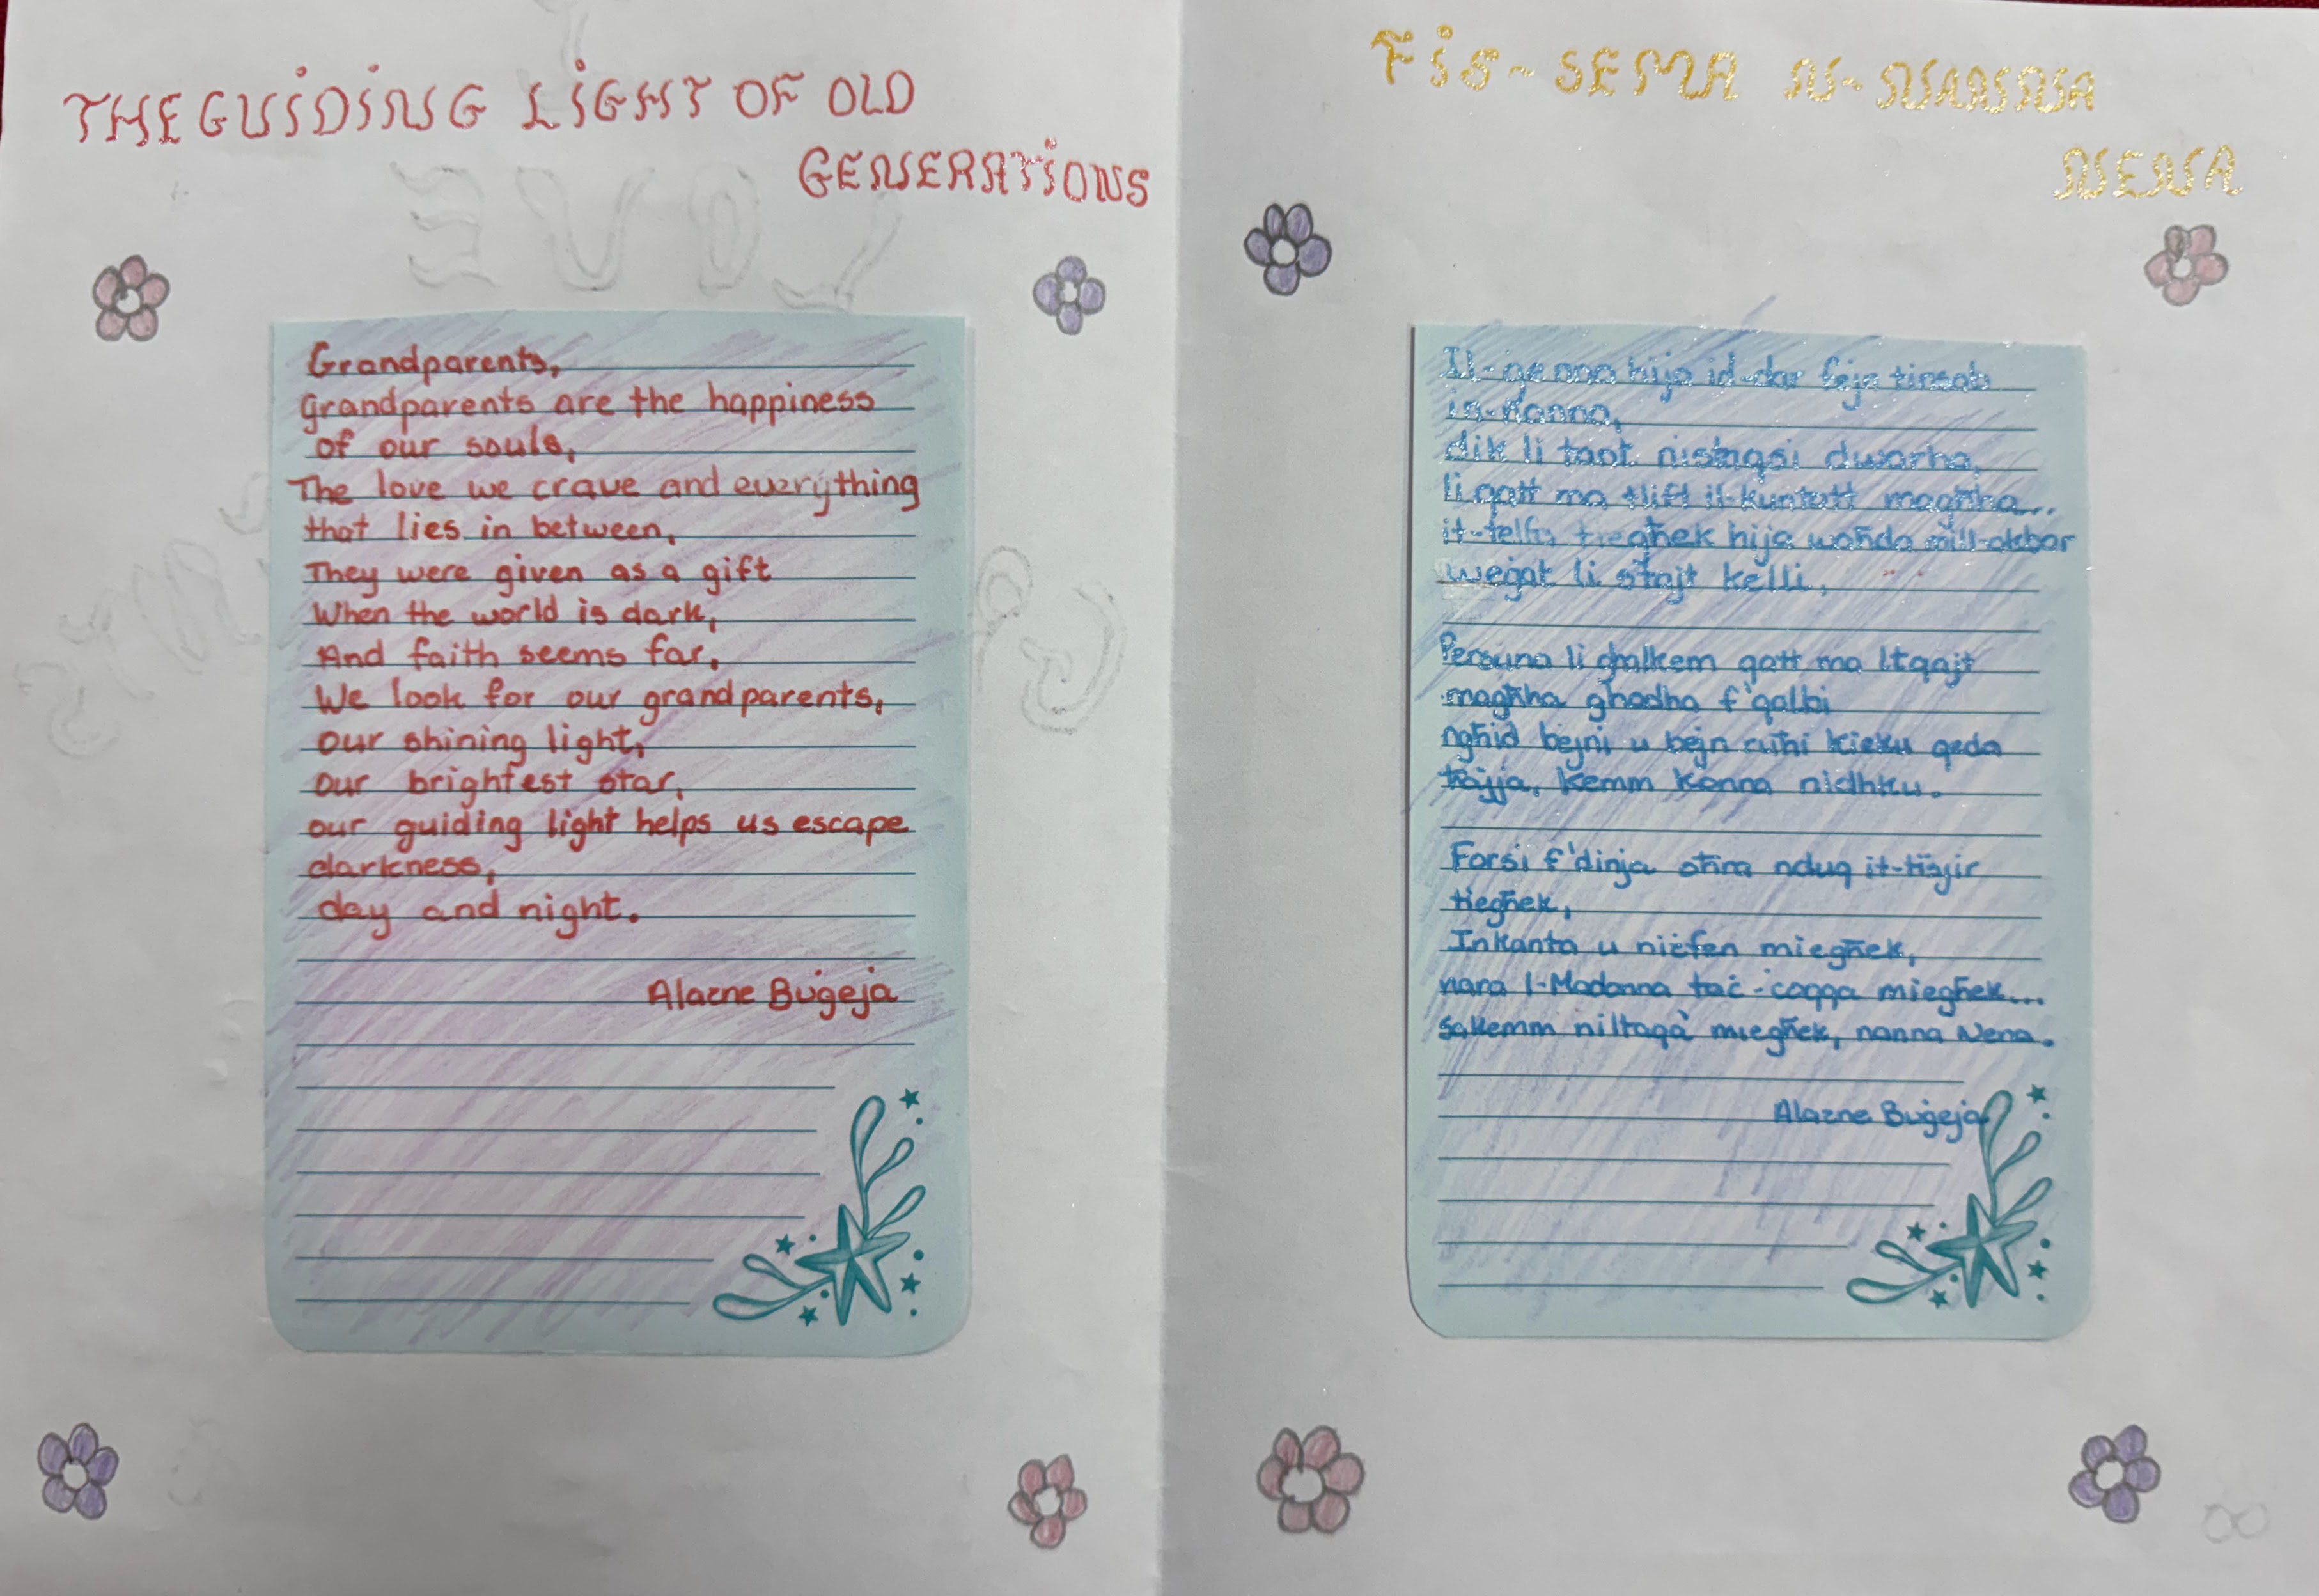 THE GUIDING LIGHT OF OLD
GENERATIONS
Grandparents,
grandparents are the happiness
of our souls,
The love we crave and everything
that lies in between,
They were given as a gift
When the world is dark,
And faith seems far,
We look for our grandparents,
our shining light,
our brightest star,
our guiding light helps us escape
darkness,
day and night.
Alazne Buġeja
FIS-SEMA N-NANNA
NENA
Il-ġenna hija id-dar feje tinsab
in-Nanna,
dik li taqt nistaqsi dwarha,
li qatt ma tlift il-kuntatt magħha...
it-telfa tiegħek hija waħda mill-akbar
weġat li stajt kelli,
Persuna li għalkem qatt ma ltqajt
magħha għadha f'qalbi
ngħid bejni u bejn ruħi kieku qeda
ħajja, kemm konna nidhku.
Forsi f'dinja oħra nduq it-tisjir
tiegħek,
Inkanta u niżfen miegħek,
nara l-Madonna taċ-ċoqqa miegħek...
sakemm niltaqa' miegħek, nanna Nena.
Alazne Buġeja
LOVE